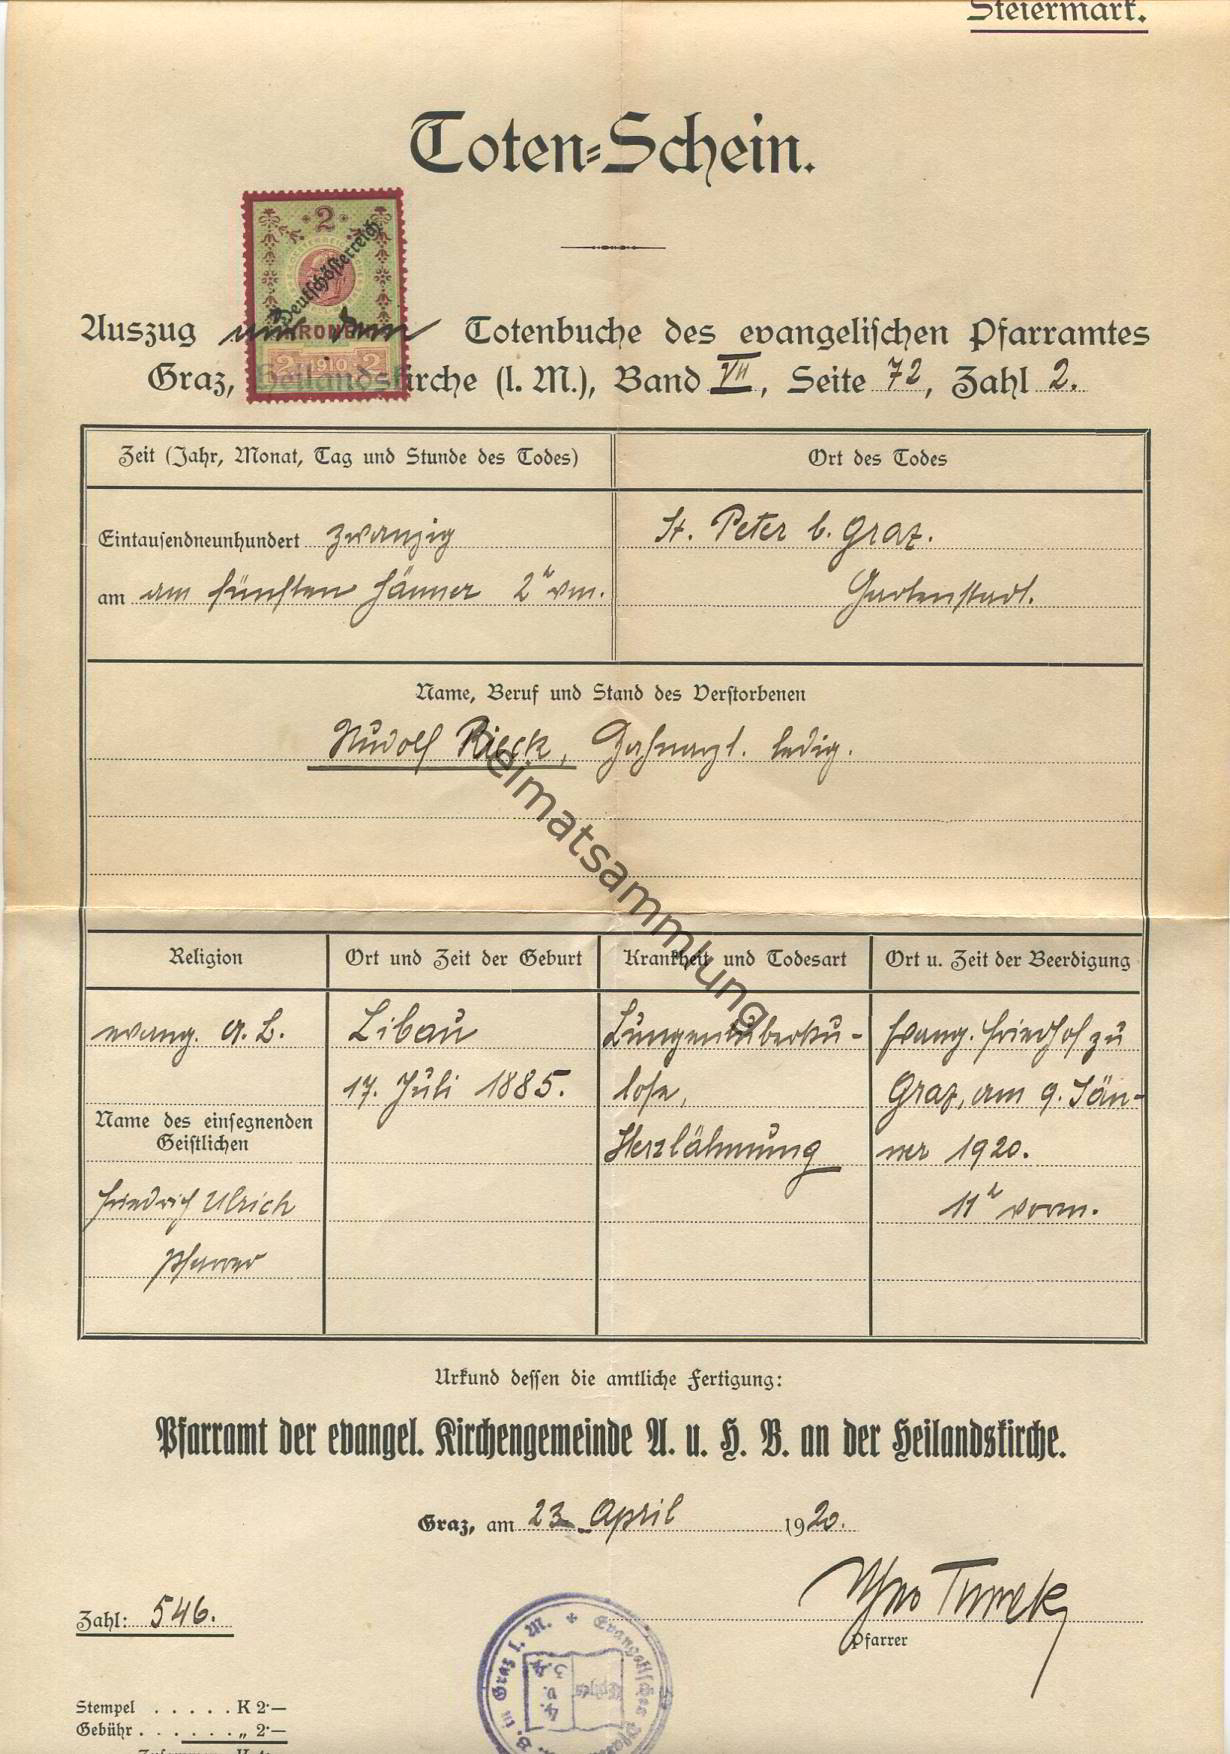 Steiermark.
Toten-Schein.
2
Deutschösterreich
KRONEN
2 1910 2
Auszug aus dem Totenbuche des evangelischen Pfarramtes
Graz, Heilandskirche (l. M.), Band VII, Seite 72, Zahl 2.
Zeit (Jahr, Monat, Tag und Stunde des Todes)
Ort des Todes
Eintausendneunhundert zwanzig
am am fünften Jänner 2 h vm.
St. Peter b. Graz.
Gartenstadt.
Name, Beruf und Stand des Verstorbenen
Rudolf Rieck, Zahnarzt. ledig.
Heimatsammlung
Religion
Ort und Zeit der Geburt
Krankheit und Todesart
Ort u. Zeit der Beerdigung
evang. A. B.
Name des einsegnenden
Geistlichen
Friedrich Ulrich
Pfarrer
Libau
17. Juli 1885.
Lungentuberku-
lose,
Herzlähmung
Evang. Friedhof zu
Graz, am 9. Jän-
ner 1920.
11 h vorm.
Urkund dessen die amtliche Fertigung:
Pfarramt der evangel. Kirchengemeinde A. u. H. B. an der Heilandskirche.
Graz, am 23. April 1920.
Pfarrer
Zahl: 546.
Evangelisches
B. in Graz l. M.
Stempel . . . . . K 2·—
Gebühr . . . . . . „ 2·—